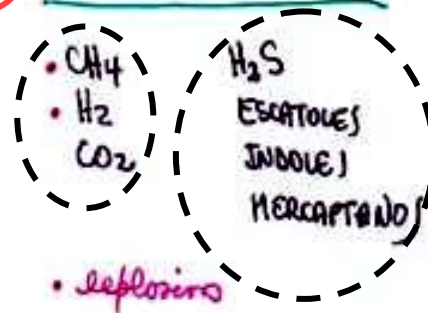 • CH4
• H2
CO2
H2S
ESCATOLES
INDOLES
MERCAPTANOS
• explosivos